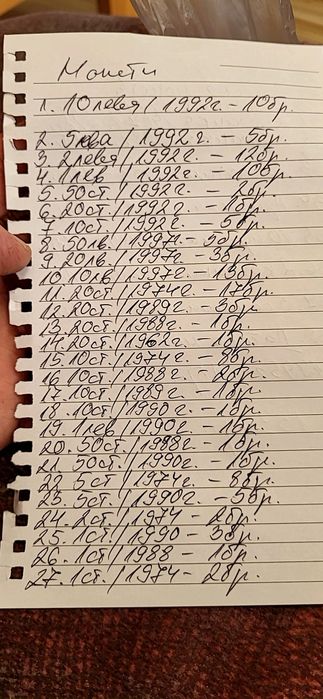 Монети
1. 10 левя / 1992г. - 10бр.
2. 5 лва / 1992г. - 5бр.
3. 2 левя / 1992г. - 12бр.
4. 1 лев / 1992г. - 10бр.
5. 50ст / 1992г. - 2бр.
6. 20ст / 1992г. - 1бр.
7. 10ст. / 1992г. - 5бр.
8. 50лв. / 1997г. - 5бр.
9. 20лв. / 1997г. - 3бр.
10. 10лв / 1997г. - 13бр.
11. 20ст / 1974г. - 17бр.
12. 20ст / 1989г. - 3бр.
13. 20ст / 1988г. - 1бр.
14. 20ст / 1962г. - 1бр.
15. 10ст / 1974г. - 9бр.
16. 10ст. / 1988г. - 2бр.
17. 10ст / 1989г. - 1бр.
18. 10ст / 1990г. - 1бр.
19. 1 лев / 1990г. - 1бр.
20. 50ст. / 1988г. - 1бр.
21. 50ст. / 1990г. - 1бр.
22. 5ст / 1974г. - 8бр.
23. 5ст. / 1990г. - 5бр.
24. 2ст. / 1974 - 2бр.
25. 1ст. / 1990 - 3бр.
26. 1ст / 1988 - 1бр.
27. 1ст. / 1974 - 2бр.